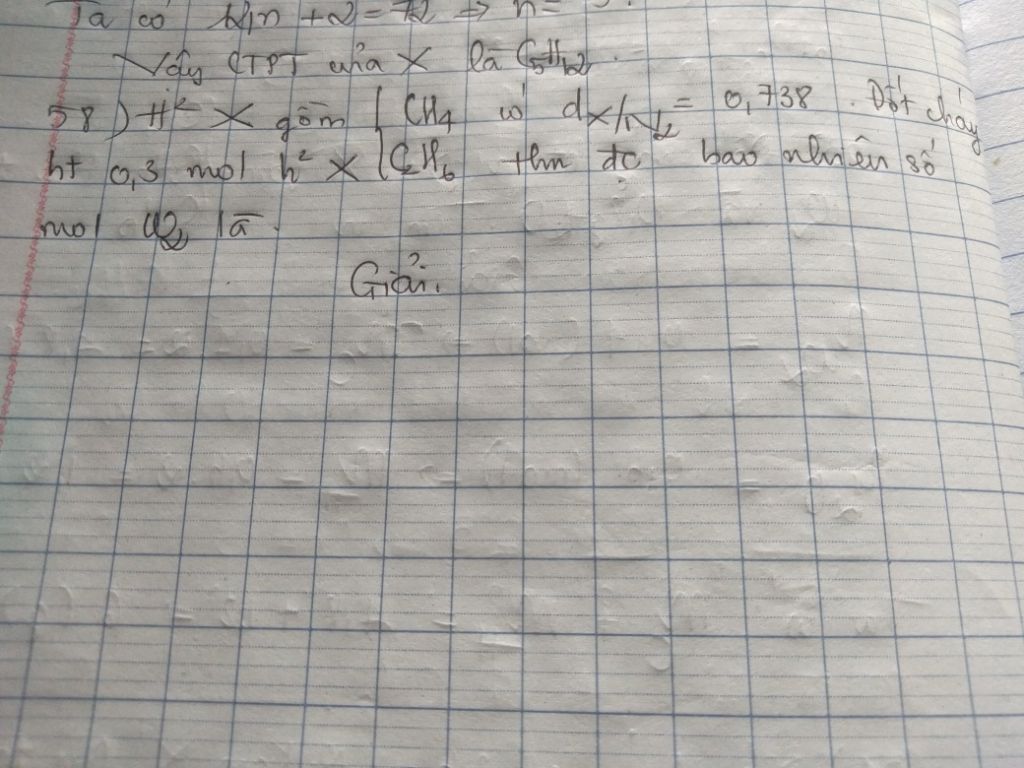 Ta có 12n + 2 = 72 → n =
Vậy CTPT của X là C5H12.
58) H² X gồm { CH4 có dX/N2 = 0,738. Đốt cháy
ht 0,3 mol h² X { C2H6 thu đc bao nhiên số
mol CO2 là
Giải.